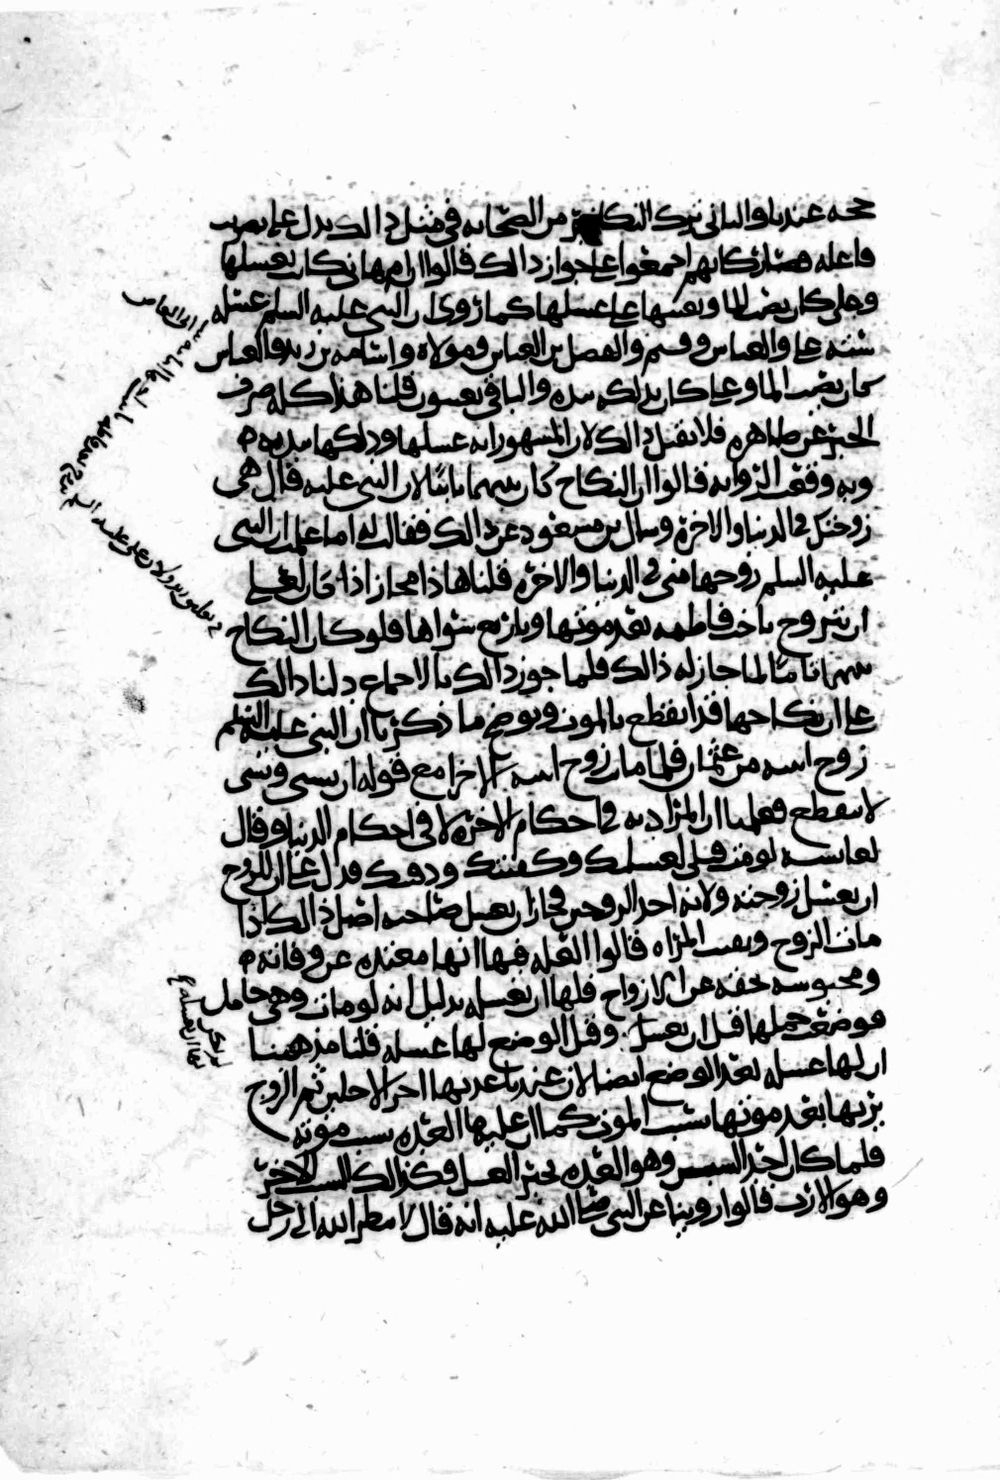 حجه عندنا والثاني ترك النكير من الصحابه في مثل ذالك يدل على تصويب
فاعله فصار كانهم اجمعوا على جواز ذالك قالوا ان ام هاني كانت تغسلها
وعلي كان يصب الما وبعينها على غسلها كما روي ان النبي عليه السلم غسله
سته علي والعباس وقثم والفضل بن العباس ومولاه واسامه بن زيد والعباس
كان يصب الما وعلي كان يدلكه بيده والباقي يعينون قلنا هذا كله صرف
الخبر عن ظاهره فلا يقبل ذالك لان المشهور انه غسلها ودلكها بيديه ه
وبه وقعت الروايه قالوا ان النكاح كان بينهما باقيا لان النبي عليه قال هي
زوجتك في الدنيا والاخره وسال بن مسعود عن ذالك فقال له اما علمت ان النبي
عليه السلم زوجها مني في الدنيا والاخره قلنا هذا مجاز اذا كان لعلي
ان يتزوج باخت فاطمه بعد موتها وباربع سواها فلو كان النكاح
بينهما باقيا لما جاز له ذالك فلما جوز ذالك بالاجماع دلنا ذالك
على ان نكاحها قد انقطع بالموت ويوضح ما ذكرنا ان النبي عليه السلم
زوج ابنته من عثمان فلما ماتت زوج ابنته الاخرا مع قوله ان سببي ونسبي
لا ينقطع فعلمنا ان المراد به في احكام الاخره لا في احكام الدنيا وقال
لعايشه لو مت قبلي لغسلتك وكفنتك ودفنتك فدل على ان للزوج
ان يغسل زوجته ولانه احد الزوجين فجاز ان يغسل صاحبه اصل ذالك اذا
مات الزوج وبقيت المراه قالوا العله فيها انها معتده عن وفاته ه
ومحبوسه بحقه عن الازواج فلها ان تغسله بدليل انه لو مات وهي حامل
فوضعت حملها قبل ان يغسل وقبل الوضع لها غسله قلنا مذهبنا
ان لها غسله بعد الوضع ايضا لان عندنا عدتها اخر الاجلين ثم الزوج
يرثها بعد موتها بسبب الموت كما ان عليها العده بسبب موته
فلما كان احد السببين وهو العده يجيز الغسل فكذالك السبب الاخر
وهو الارث قالوا روينا عن النبي صلى الله عليه انه قال لا ينظر الله الى رجل